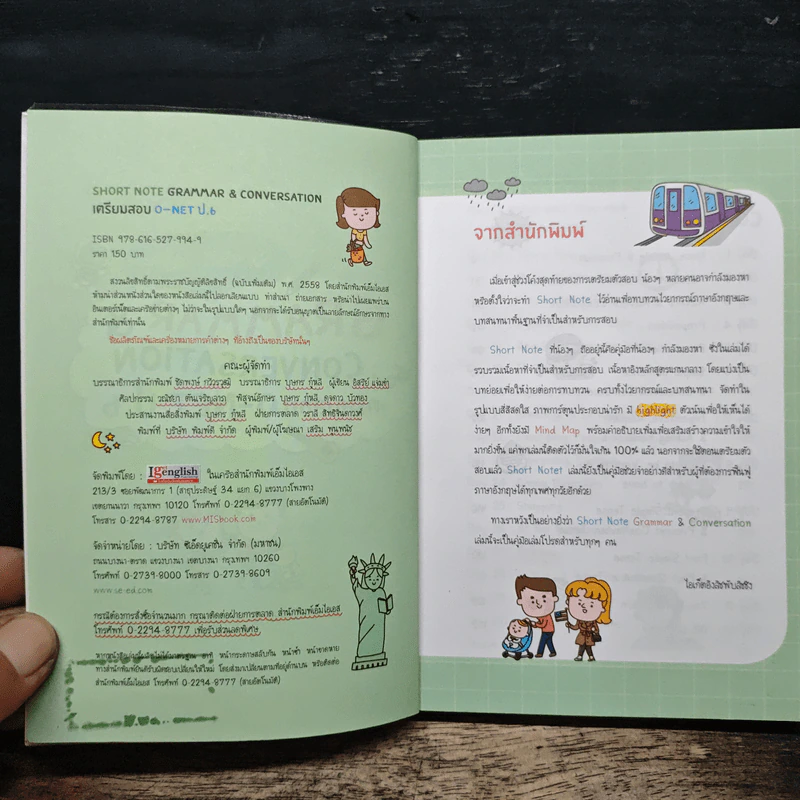 SHORT NOTE GRAMMAR & CONVERSATION
เตรียมสอบ O-NET ป.6
ISBN 978-616-527-994-9
ราคา 150 บาท
สงวนลิขสิทธิ์ตามพระราชบัญญัติลิขสิทธิ์ (ฉบับเพิ่มเติม) พ.ศ. 2558 โดยสำนักพิมพ์เอ็มไอเอส
ห้ามนำส่วนหนึ่งส่วนใดของหนังสือเล่มนี้ไปลอกเลียนแบบ ทำสำเนา ถ่ายเอกสาร หรือนำไปเผยแพร่บน
อินเตอร์เน็ตและเครือข่ายต่างๆ ไม่ว่าจะในรูปแบบใดๆ นอกจากจะได้รับอนุญาตเป็นลายลักษณ์อักษรจากทาง
สำนักพิมพ์เท่านั้น
ชื่อผลิตภัณฑ์และเครื่องหมายการค้าต่างๆ ที่อ้างถึงเป็นของบริษัทนั้นๆ
คณะผู้จัดทำ
บรรณาธิการสำนักพิมพ์ ชิดพงษ์ กวีวรวุฒิ บรรณาธิการ บุษกร กู้หลี ผู้เขียน อิสรีย์ แจ่มขำ
ศิลปกรรม วณิชยา ตันเจริญลาภ พิสูจน์อักษร บุษกร กู้หลี, ดุจดาว บัวทอง
ประสานงานสื่อสิ่งพิมพ์ บุษกร กู้หลี ฝ่ายการตลาด วราลี สิทธิจินดาวงศ์
พิมพ์ที่ บริษัท พิมพ์ดี จำกัด ผู้พิมพ์/ผู้โฆษณา เสริม พูนพนิช
จัดพิมพ์โดย : Igenglish ในเครือสำนักพิมพ์เอ็มไอเอส
213/3 ซอยพัฒนาการ 1 (สาธุประดิษฐ์ 34 แยก 6) แขวงบางโพงพาง
เขตยานนาวา กรุงเทพฯ 10120 โทรศัพท์ 0-2294-8777 (สายอัตโนมัติ)
โทรสาร 0-2294-8787 www.MISbook.com
จัดจำหน่ายโดย : บริษัท ซีเอ็ดยูเคชั่น จำกัด (มหาชน)
ถนนบางนา-ตราด แขวงบางนา เขตบางนา กรุงเทพฯ 10260
โทรศัพท์ 0-2739-8000 โทรสาร 0-2739-8609
www.se-ed.com
กรณีต้องการสั่งซื้อจำนวนมาก กรุณาติดต่อฝ่ายการตลาด สำนักพิมพ์เอ็มไอเอส
โทรศัพท์ 0-2294-8777 เพื่อรับส่วนลดพิเศษ
หากหนังสือเล่มนี้ผลิตไม่ได้มาตรฐาน อาทิ หน้ากระดาษสลับกัน หน้าซ้ำ หน้าขาดหาย
ทางสำนักพิมพ์ยินดีรับผิดชอบเปลี่ยนให้ใหม่ โดยส่งมาเปลี่ยนตามที่อยู่ด้านบน หรือติดต่อ
สำนักพิมพ์เอ็มไอเอส โทรศัพท์ 0-2294-8777 (สายอัตโนมัติ)
จากสำนักพิมพ์
เมื่อเข้าสู่ช่วงโค้งสุดท้ายของการเตรียมตัวสอบ น้องๆ หลายคนอาจกำลังมองหา
หรือตั้งใจว่าจะทำ Short Note ไว้อ่านเพื่อทบทวนไวยากรณ์ภาษาอังกฤษและ
บทสนทนาพื้นฐานที่จำเป็นสำหรับการสอบ
Short Note ที่น้องๆ ถืออยู่นี้คือคู่มือที่น้องๆ กำลังมองหา ซึ่งในเล่มได้
รวบรวมเนื้อหาที่จำเป็นสำหรับการสอบ เนื้อหาอิงหลักสูตรแกนกลาง โดยแบ่งเป็น
บทย่อยเพื่อให้ง่ายต่อการทบทวน ครบทั้งไวยากรณ์และบทสนทนา จัดทำใน
รูปแบบสีสันสดใส ภาพการ์ตูนประกอบน่ารัก มี highlight ตัวเน้นเพื่อให้เห็นได้
ง่ายๆ อีกทั้งยังมี Mind Map พร้อมคำอธิบายเพิ่มเพื่อเสริมสร้างความเข้าใจให้
มากยิ่งขึ้น แค่พกเล่มนี้ติดตัวไว้ก็มั่นใจเกิน 100% แล้ว นอกจากจะใช้ตอนเตรียมตัว
สอบแล้ว Short Note! เล่มนี้ยังเป็นคู่มือช่วยจำอย่างดีสำหรับผู้ที่ต้องการฟื้นฟู
ภาษาอังกฤษได้ทุกเพศทุกวัยอีกด้วย
ทางเราหวังเป็นอย่างยิ่งว่า Short Note Grammar & Conversation
เล่มนี้จะเป็นคู่มือเล่มโปรดสำหรับทุกๆ คน
ไอเก็ตอิงลิชพับลิชชิง